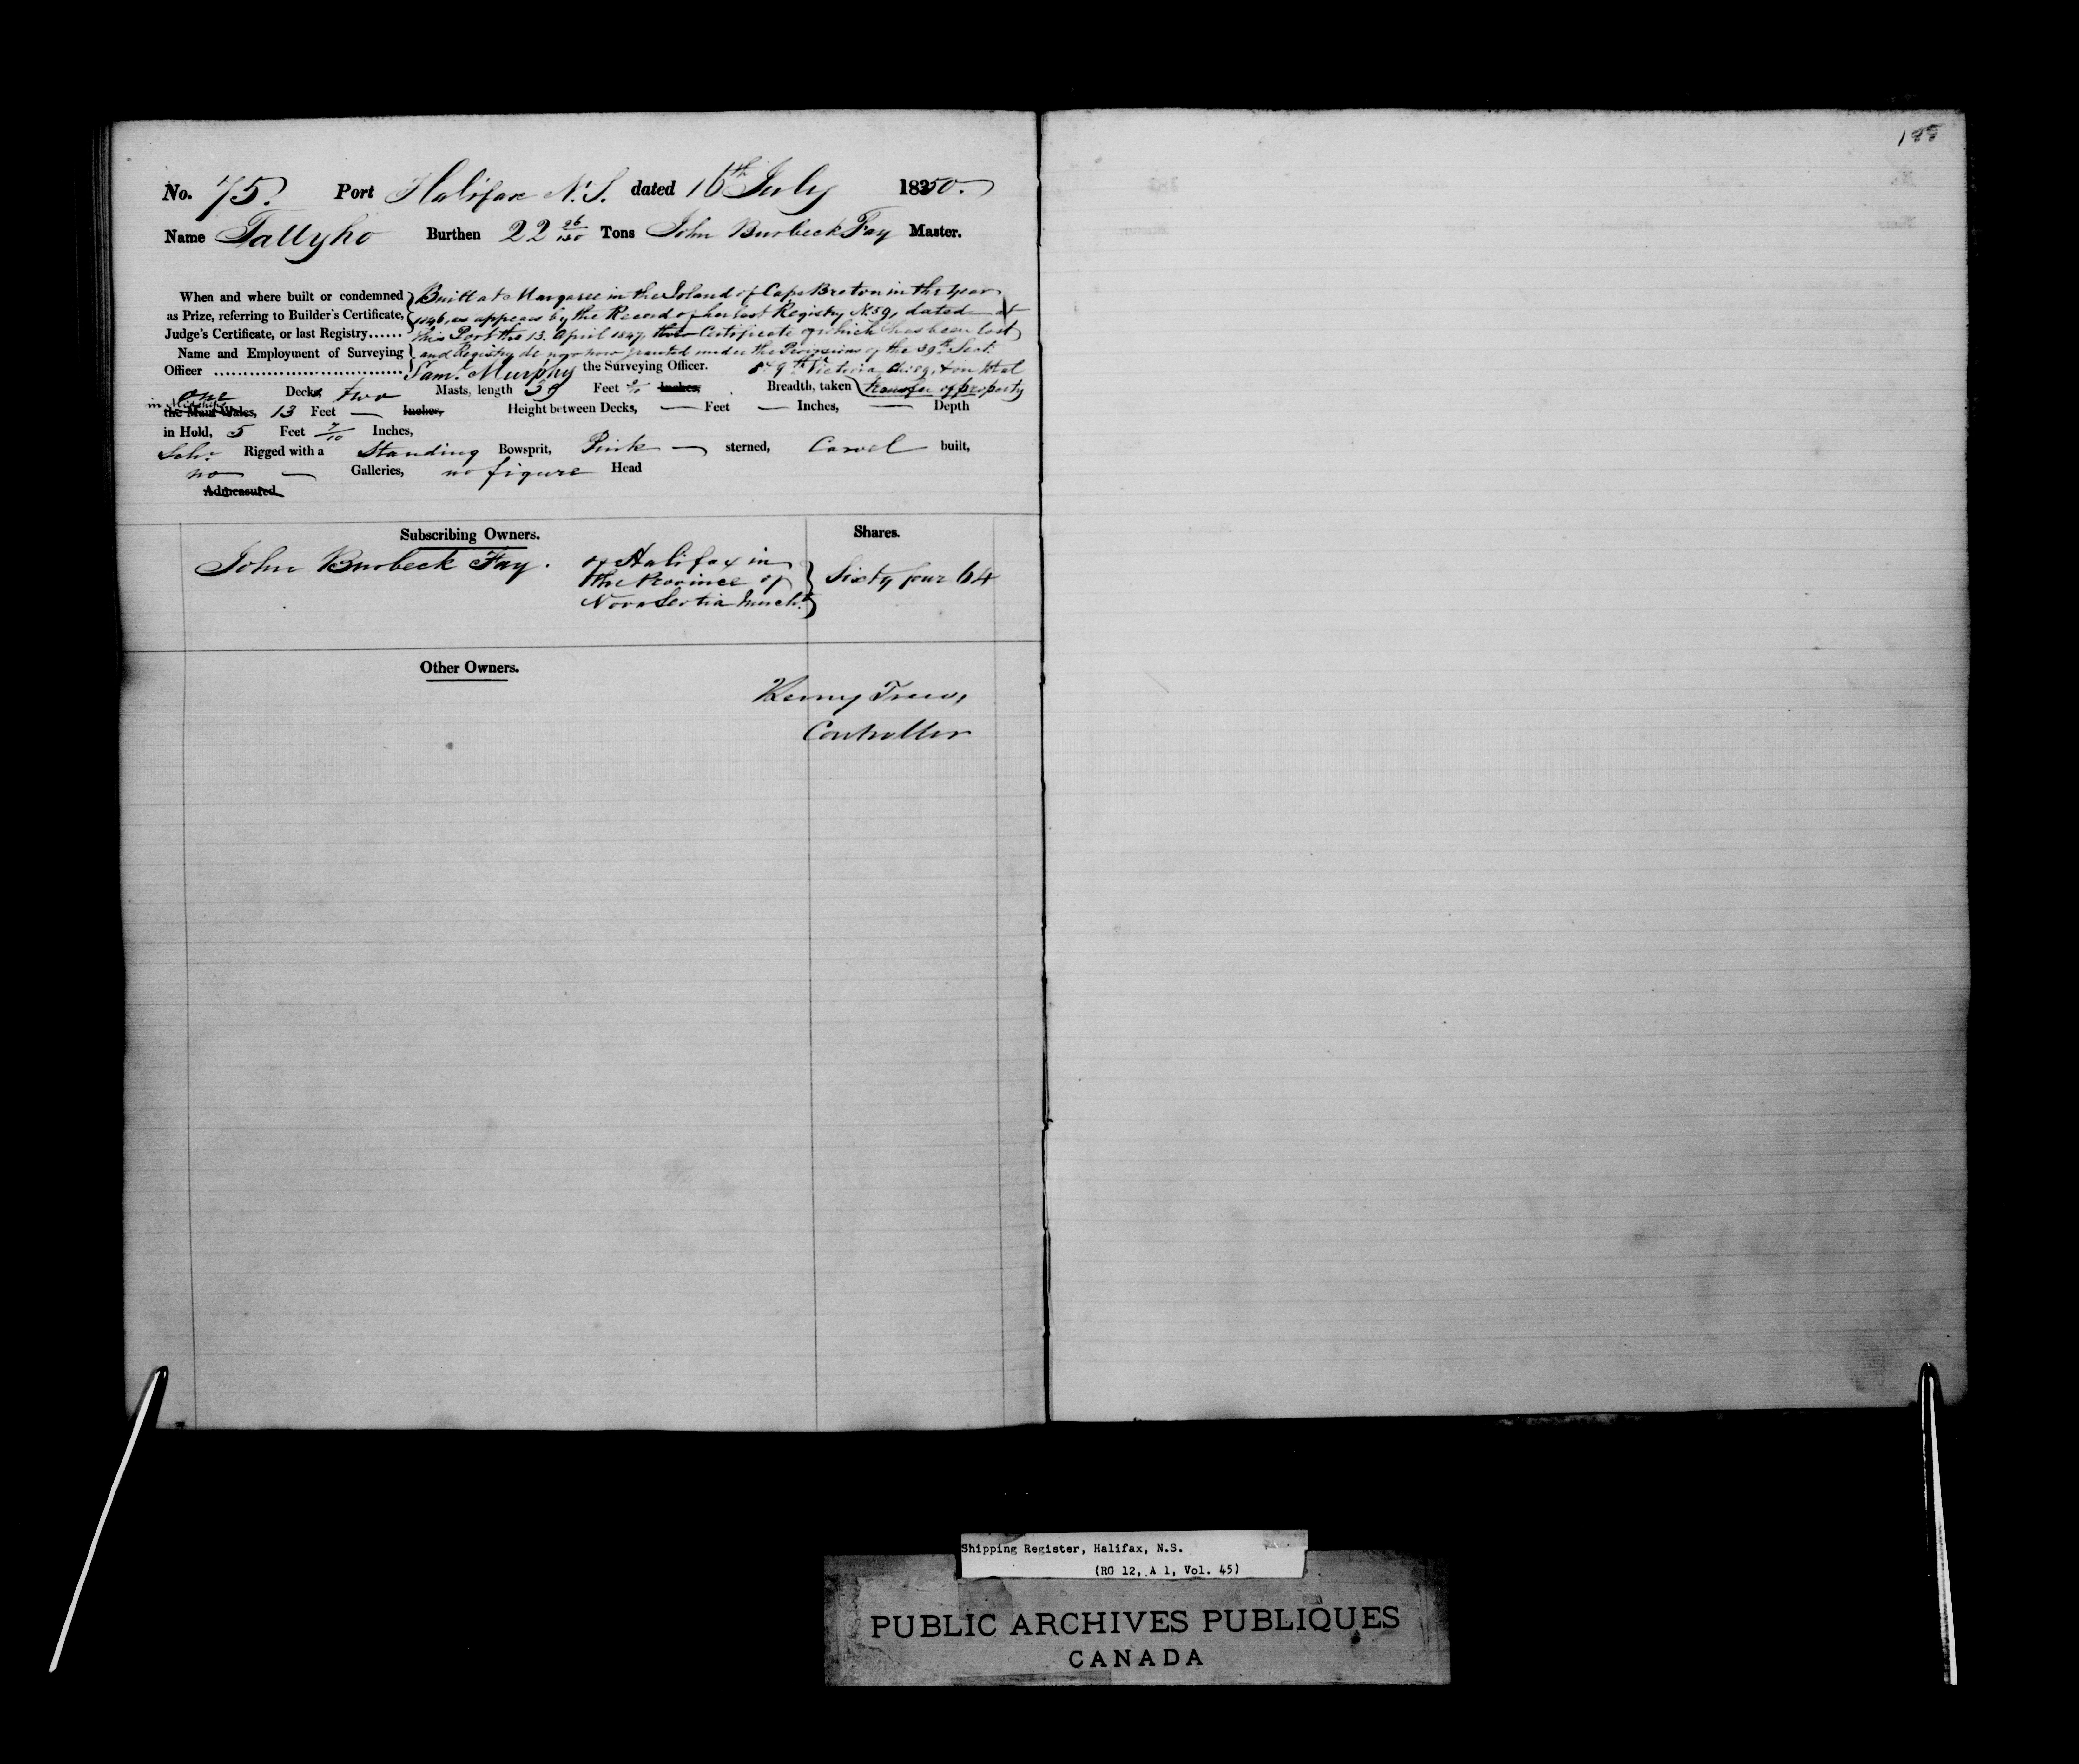 188
No. 75. Port Halifax N.S. dated 16th July 1850.
Name Tallyho Burthen 22 26/130 Tons John Burbeck Fay Master.
When and where built or condemned as Prize, referring to Builder's Certificate, Judge's Certificate, or last Registry......
Built at Margaree in the Island of Cape Breton in the Year
1846, as appears by the Record of her last Registry No. 59, dated at
this Port the 13 April 1847, the Certificate of which has been lost
and Registry de novo now granted under the Provisions of the 39th Sect.
8 & 9th Victoria Ch: 89, & on total
transfer of property
Name and Employment of Surveying Officer ................................ Saml. Murphy the Surveying Officer.
one Decks, two Masts, length 39 Feet Inches, Breadth, taken
in Midships the Main Wales, 13 Feet — Inches, Height between Decks, — Feet — Inches, — Depth
in Hold, 5 Feet 7/10 Inches,
Schr. Rigged with a Standing Bowsprit, Pink — sterned, Carvel built,
no — Galleries, no figure Head
Admeasured
Subscribing Owners. Shares.
John Burbeck Fay. of Halifax in
the Province of
Nova Scotia Mercht.
Sixty four 64
Other Owners.
Henry Trew,
Controller
Shipping Register, Halifax, N.S.
(RG 12, A 1, Vol. 45)
PUBLIC ARCHIVES PUBLIQUES
CANADA